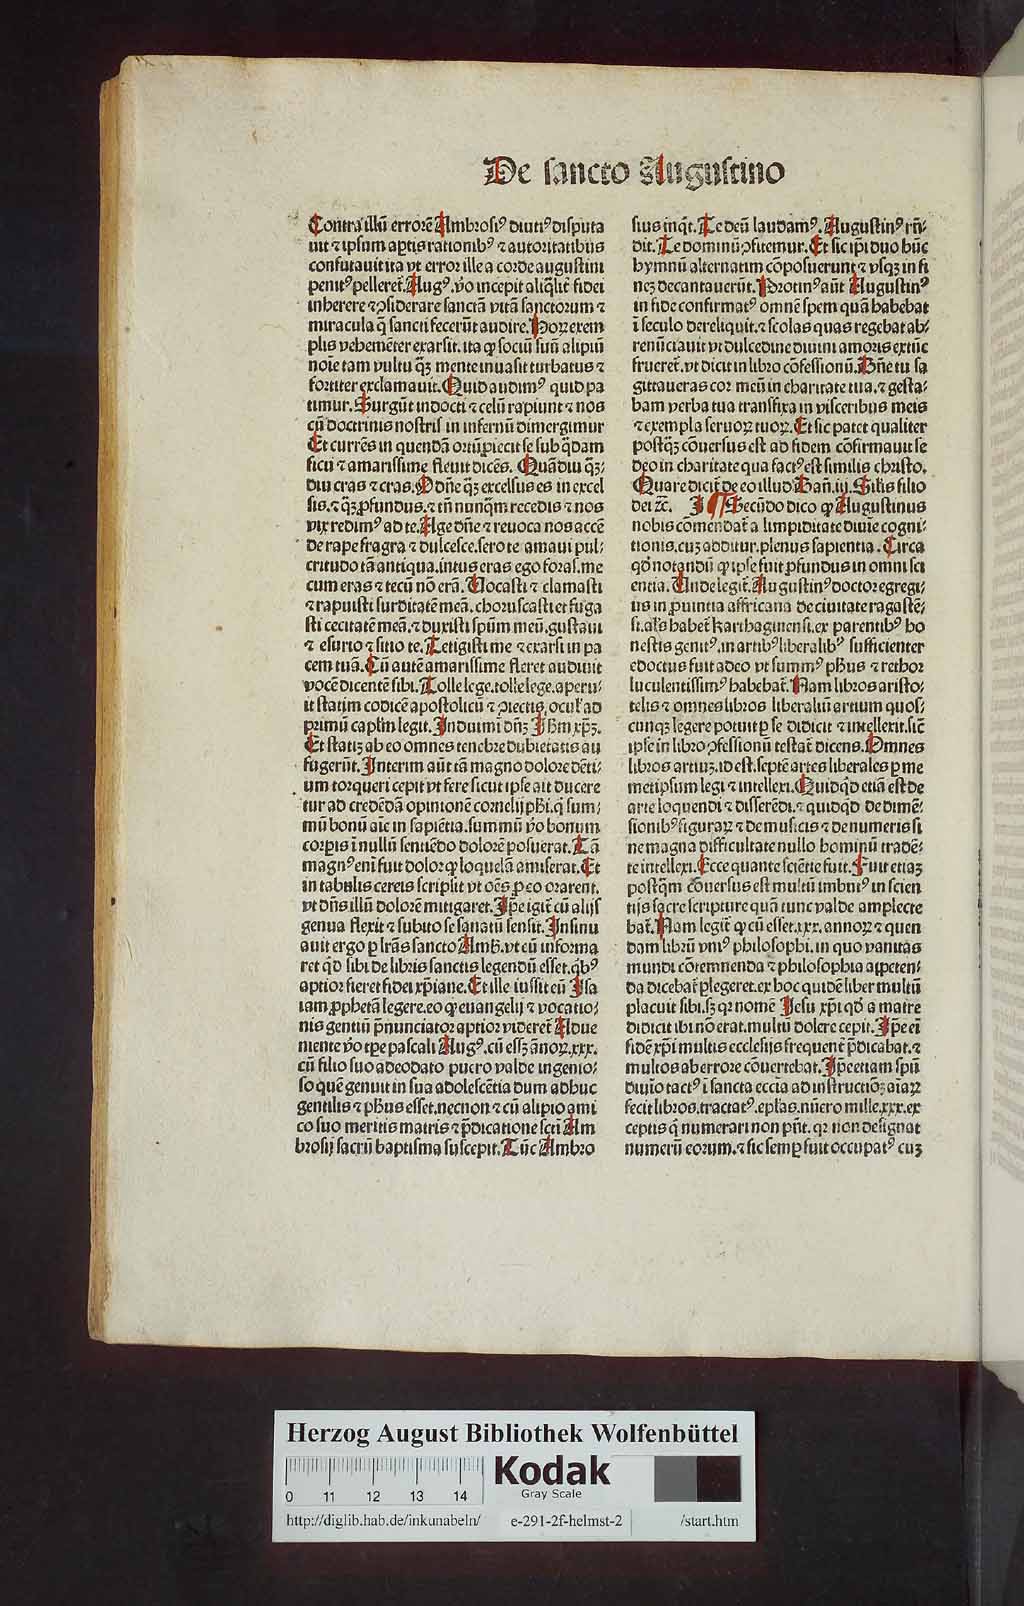 De sancto Augustino
Contra illū errorē Ambrosiꝰ diutiꝰ disputa
uit ⁊ ipsum aptis rationibꝰ ⁊ autoritatibus
confutauit ita vt error ille a corde augustini
penitꝰ pelleret. Augꝰ. v̄o incepit aliq̄lit fidei
inherere ⁊ ↄsiderare sanctā vitā sanctorum ⁊
miracula q̄ sancti fecerūt audire. Hoꝝ exem
plis vehemēter exarsit. ita ꝙ sociū suū alipiū
noīe tam vultu q̄ꝫ mente inuasit turbatus ⁊
fortiter exclamauit. Quid audimꝰ quid pa
timur. Surgūt indocti ⁊ celū rapiunt ⁊ nos
cū doctrinis nostris in infernū dimergimur
Et currēs in quendā ortū ꝓiecit se sub q̄dam
ficu ⁊ amarissime fleuit dicēs. Quādiu q̄ꝫ-
diu cras ⁊ cras. O dn̄e q̄ꝫ excelsus es in excel
sis. ⁊ q̄ꝫ ꝓfundus. ⁊ tn̄ nunq̄m recedis ⁊ nos
vix redimꝰ ad te. Age dn̄e ⁊ reuoca nos accē
de rape fragra ⁊ dulcesce. sero te amaui pul-
critudo tā antiqua. intus eras ego foras. me
cum eras ⁊ tecū nō erā. Vocasti ⁊ clamasti
⁊ rapuisti surditatē meā. choruscasti et fuga
sti cecitatē meā. ⁊ duxisti spūm meū. gustaui
⁊ esurio ⁊ sitio te. Tetigisti me ⁊ exarsi in pa
cem tuā. Cū autē amarissime fleret audiuit
vocē dicentē sibi. Tolle lege. tolle lege. aperu-
it statim codicē apostolicū ⁊ ꝓiectis ocul' ad
primū caplm legit. Induimī dn̄ꝫ Ihm xp̄ꝫ.
Et statiꝫ ab eo omnes tenebre dubietatis au
fugerūt. Interim aūt tā magno dolore dēti-
um torqueri cepit vt fere sicut ipse ait ducere
tur ad credēdā opinionē cornelij phi. q̄ sum-
mū bonū aīe in sapiētia. summū v̄o bonum
corꝑis ī nullū sentiēdo dolorē posuerat. Tā
magnꝰ enī fuit dolor ꝙ loquelā amiserat. Et
in tabulis cereis scripsit vt oēs ꝓ eo orarent.
vt dn̄s illū dolorē mitigaret. Ip̄e igit̄ cū alijs
genua flexit ⁊ subito se sanatū sensit. Insinu
auit ergo ꝑ lr̄as sancto Amb. vt eū informa
ret qd̄ sibi de libris sanctis legendū esset. q̄bꝰ
aptior fieret fidei xp̄iane. Et ille iussit eū Isa
iam ꝓphetā legere. eo ꝙ euangelij ⁊ vocatio-
nis gentiū p̄nunciator aptior videret̄ Adue
niente v̄o tp̄e pascali Augꝰ. cū essꝫ ānoꝝ. xxx.
cū filio suo adeodato puero valde ingenio-
so quē genuit in sua adolescētia dum adhuc
gentilis ⁊ phus esset. necnon ⁊ cū alipio ami
co suo meritis matris ⁊ p̄dicatione scti Am
brosij sacrū baptisma suscepit. Tūc Ambro
sius inq̄t. Te deū laudamꝰ. Augustinꝰ rn̄-
dit. Te dominū ↄfitemur. Et sic ip̄i duo hūc
hymnū alternatim cōposuerunt ⁊ vsqꝫ in fi
neꝫ decantauerūt. Protinꝰ aūt Augustinꝰ
in fide confirmatꝰ omnē spem quā habebat
ī seculo dereliquit. ⁊ scolas quas regebat ab-
renūciauit vt dulcedine diuini amoris extūc
frueret̄. vt dicit in libro cōfessionū. Dn̄e tu sa
gittaueras cor meū in charitate tua. ⁊ gesta-
bam verba tua transfixa in visceribus meis
⁊ exempla seruoꝝ tuoꝝ. Et sic patet qualiter
postq̄ꝫ cōuersus est ad fidem cōfirmauit se
deo in charitate qua factꝰ est similis christo.
Quare dicit̄ de eo illud Dan̄. iij. Silis filio
dei ⁊c̄. ¶ Secūdo dico ꝙ Augustinus
nobis cōmendat̄ a limpiditate diuīe cogni-
tionis. cuꝫ additur. plenus sapientia. Circa
qd̄ notandū ꝙ ipse fuit ꝓfundus in omni sci
entia. Unde legit̄. Augustinꝰ doctor egregi-
us in ꝓuintia affricana de ciuitate ragastē-
si. al's habet̄ karthaginensi. ex parentibꝰ ho
nestis genitꝰ. in artibꝰ liberalibꝰ sufficienter
edoctus fuit adeo vt summꝰ phus ⁊ rethor
luculentissimꝰ habebat̄. Nam libros aristo-
telis ⁊ omnes libros liberaliū artium quos-
cunqꝫ legere potuit ꝑ se didicit ⁊ intellexit. sic̄
ipse in libro ↄfessionū testat̄ dicens. Omnes
libros artiuꝫ. id est. septē artes liberales ꝑ me
metipsum legi ⁊ intellexi. Quidqd̄ etiā est de
arte loquendi ⁊ disserēdi. ⁊ quidqd̄ de dimē-
sionibꝰ figuraꝝ ⁊ de musicis ⁊ de numeris si
ne magna difficultate nullo hominū tradē-
te intellexi. Ecce quante sciētie fuit. Fuit etiaꝫ
postq̄m cōuersus est multū imbutꝰ in scien
tijs sacre scripture quā tunc valde amplecte
bat̄. Nam legit̄ ꝙ cū esset. xxx. annoꝝ ⁊ quen
dam librū vniꝰ philosophi. in quo vanitas
mundi cōtemnenda ⁊ philosophia appeten-
da dicebat̄ ꝑlegeret. ex hoc quidē liber multū
placuit sibi. sꝫ qr nomē Jesu xp̄i qd̄ a matre
didicit ibi nō erat. multū dolere cepit. Ip̄e eī
fidē xp̄i multis ecclesijs frequent̄ p̄dicabat. ⁊
multos ab errore cōuertebat. Ip̄e etiam spū
diuīo tactꝰ ī sancta eccīa ad instructiōꝫ aīaꝝ
fecit libros. tractatꝰ. ep̄las. nūero mille. xxx. ex
ceptis q̄ numerari non pn̄t. qr non designat
numerū eorum. ⁊ sic semꝑ fuit occupatꝰ cuꝫ
Herzog August Bibliothek Wolfenbüttel
0 11 12 13 14
Kodak
Gray Scale
http://diglib.hab.de/inkunabeln/ e-291-2f-helmst-2 /start.htm